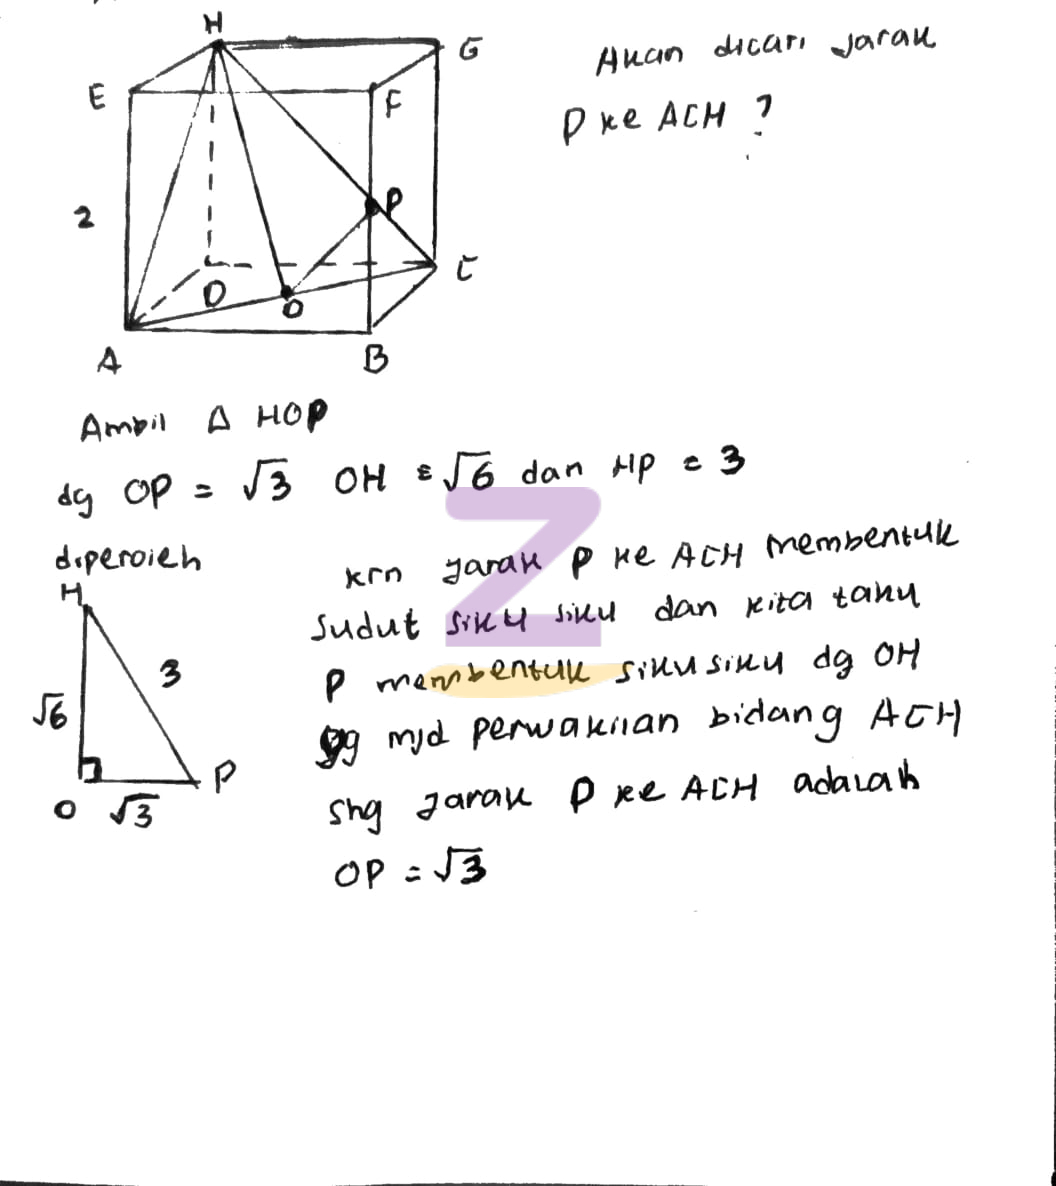 H
G
Akan dicari jarak
E
F
P ke ACH ?
2
P
D
C
O
A
B
Ambil Δ HOP
dg OP = √3 OH = √6 dan HP = 3
diperoleh
H
krn jarak P ke ACH membentuk
sudut siku siku dan kita tahu
3
P membentuk siku siku dg OH
√6
yg mjd perwakilan bidang ACH
P
O √3
shg jarak P ke ACH adalah
OP = √3
Z